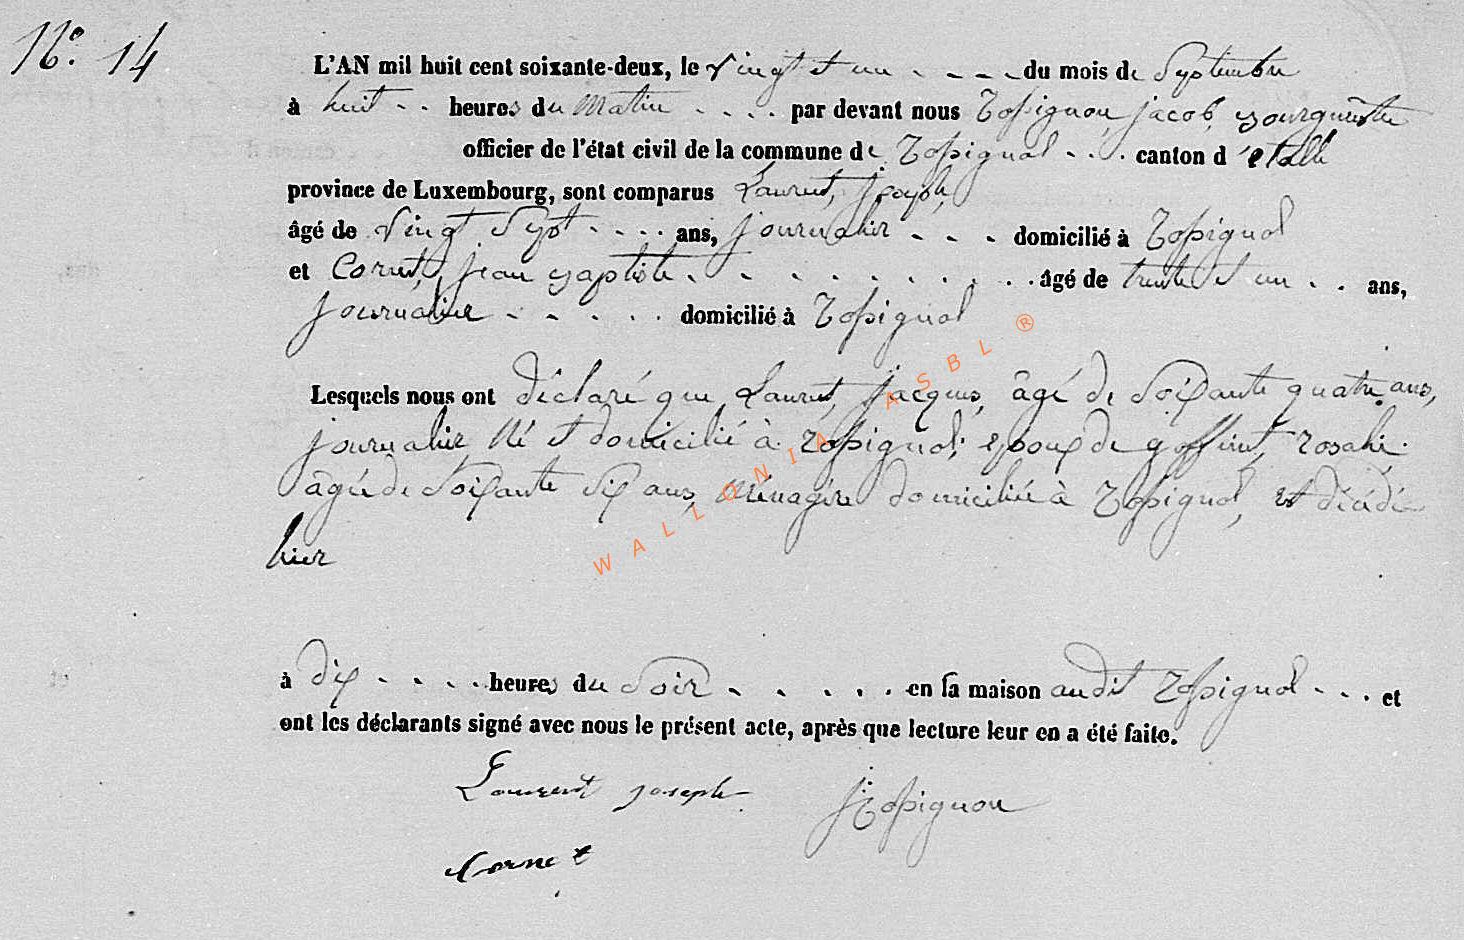 N° 14
L'AN mil huit cent soixante-deux, le vingt et un - - - - du mois de Septembre
à huit - - heures du matin - - - - par devant nous Rossignon, jacob, bourgmestre
officier de l'état civil de la commune de Rossignol - - - canton d'étalle
province de Luxembourg, sont comparus Laurent, Joseph,
âgé de vingt sept - - - - ans, journalier - - - domicilié à Rossignol
et Cornet, jean baptiste - - - - - - - - - - âgé de trente et un - - ans,
journalier - - - - - domicilié à Rossignol
Lesquels nous ont déclaré que Laurent, Jacques, âgé de soixante quatre ans,
journalier né et domicilié à Rossignol, époux de goffinet, rosalie
âgée de soixante six ans, ménagère domiciliée à Rossignol, est décédé
hier
à dix - - - - heures du soir - - - - - en sa maison audit Rossignol - - - et
ont les déclarants signé avec nous le présent acte, après que lecture leur en a été faite.
Laurent joseph
J Rossignon
Cornet
WALLONIA ASBL ®